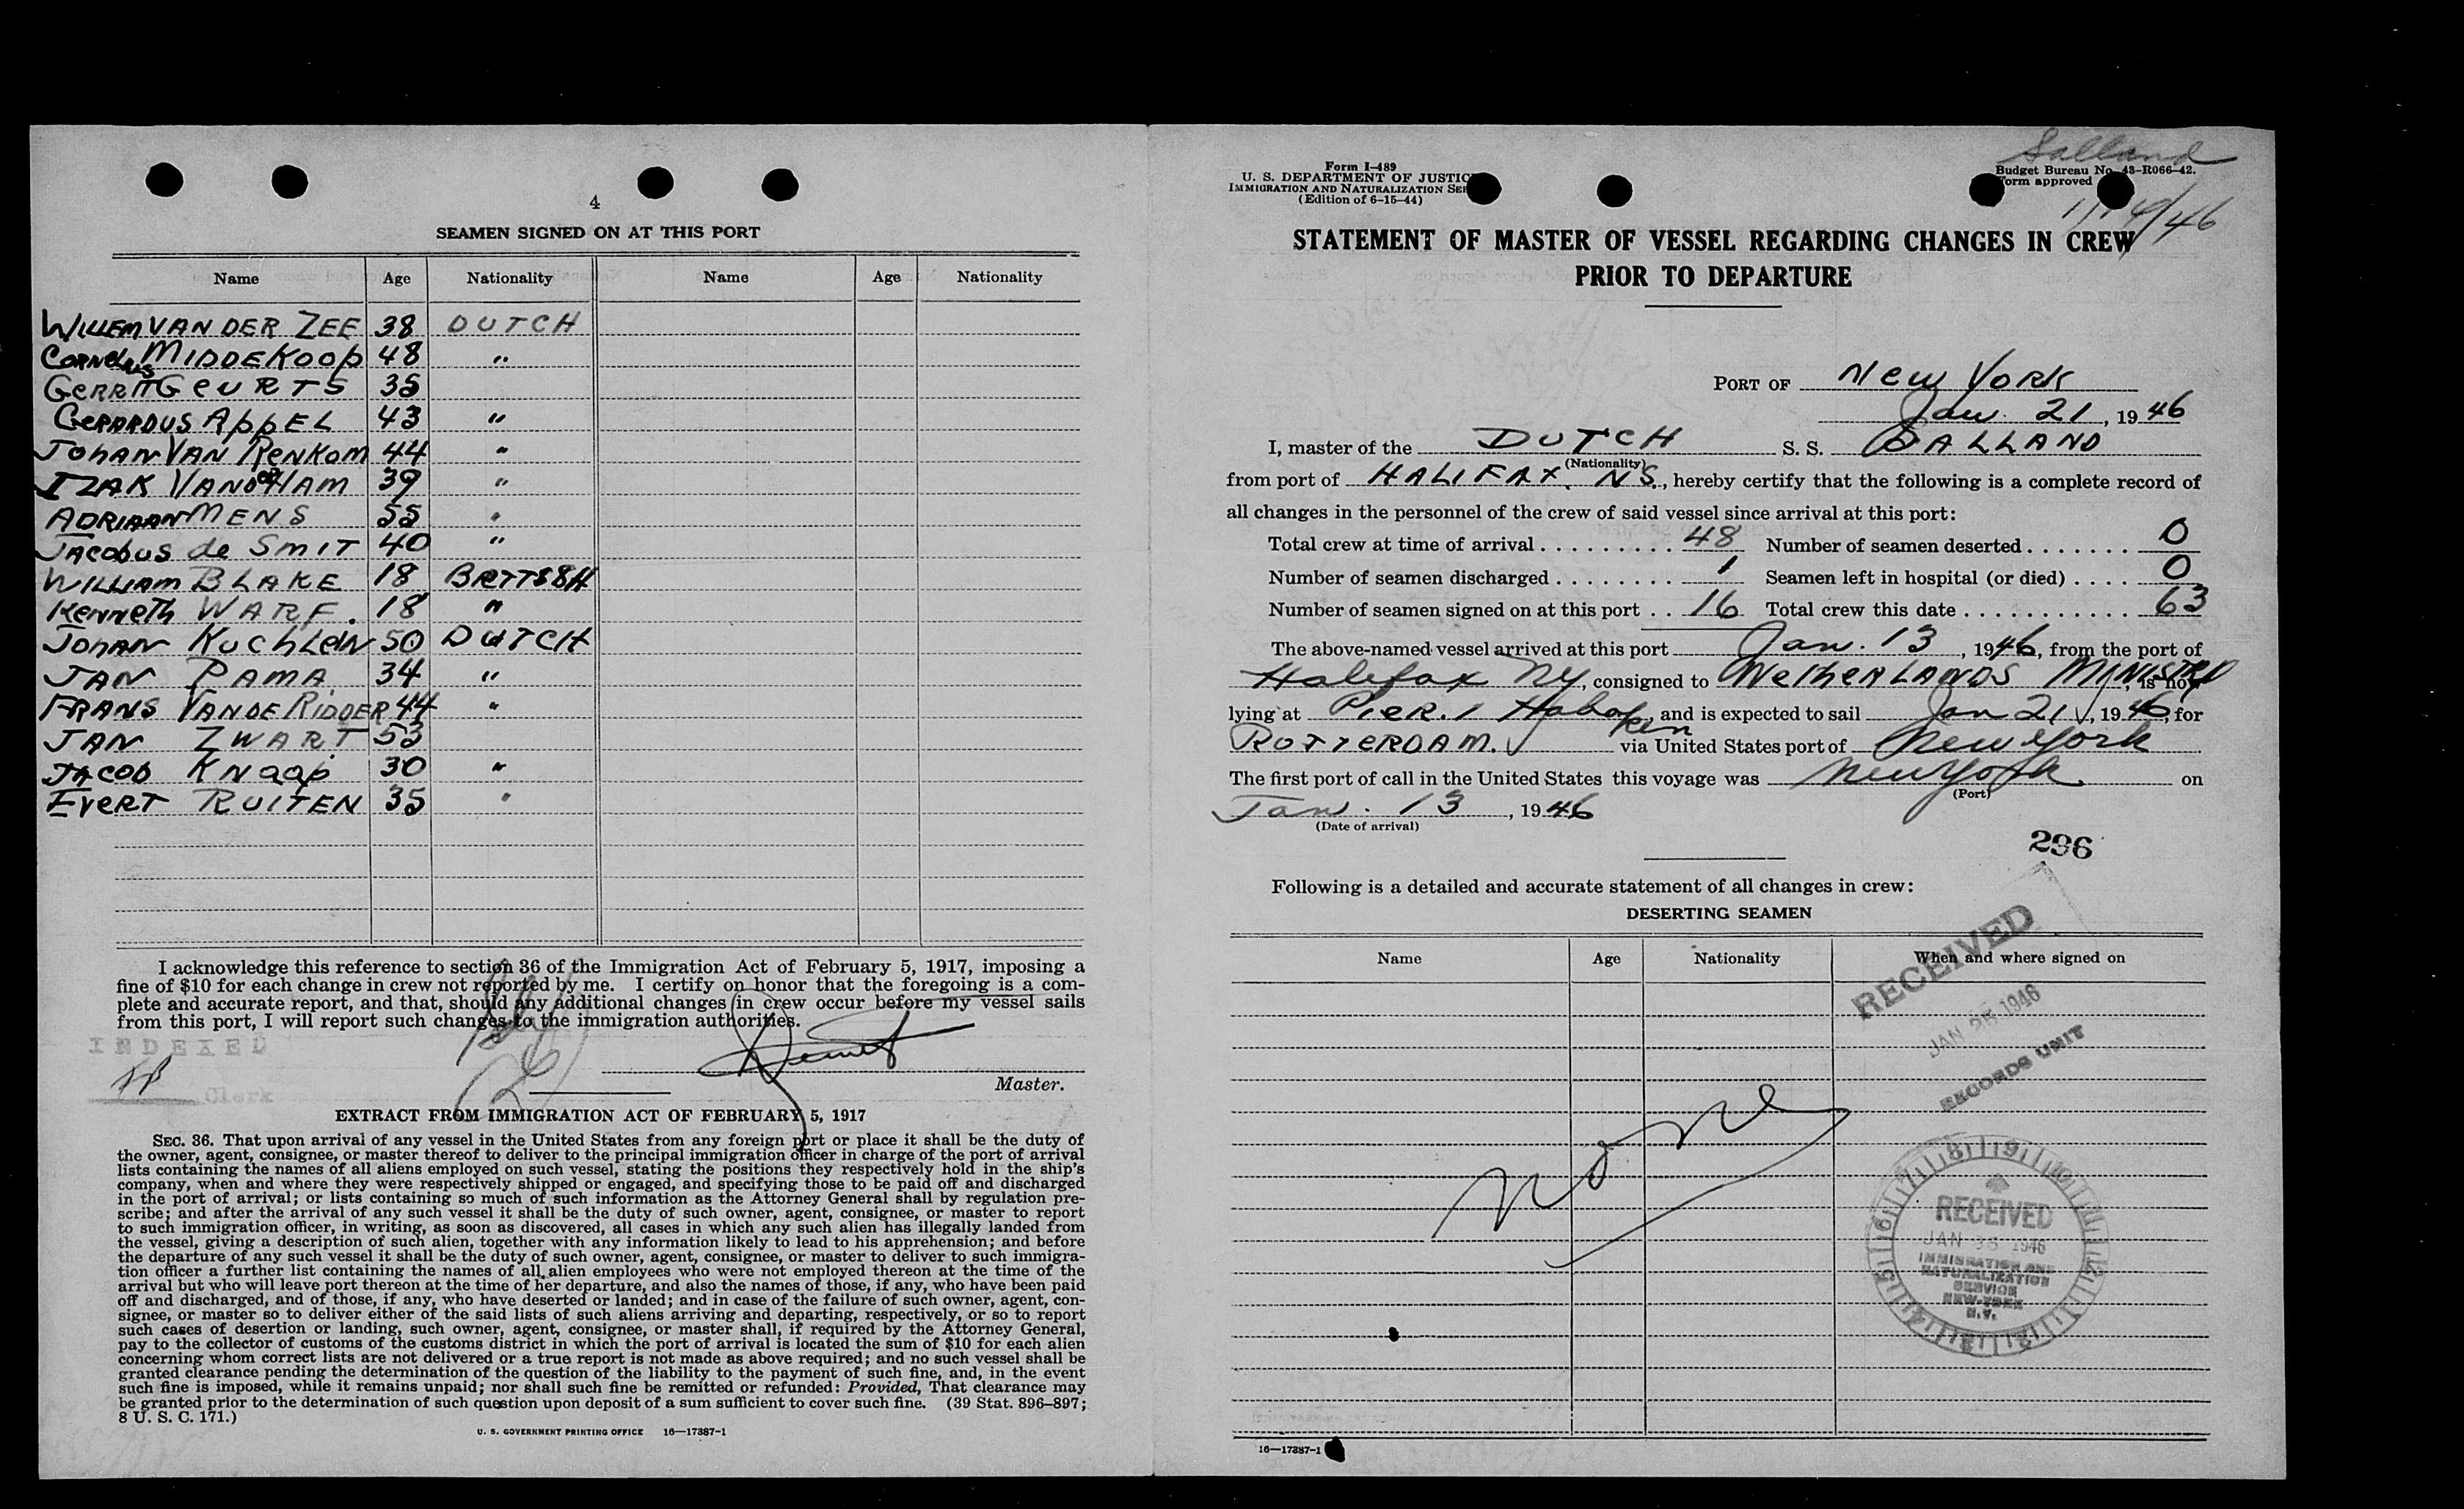 4
SEAMEN SIGNED ON AT THIS PORT
Name Age Nationality Name Age Nationality
WILLEM VAN DER ZEE 38 DUTCH
CORNELIUS MIDDEKOOP 48 "
GERRIT GEURTS 35
GERARDUS APPEL 43 "
JOHAN VAN RENKOM 44 "
IZAK VAN DER HAM 39 "
ADRIAAN MENS 55 "
JACOBUS de SMIT 40 "
WILLIAM BLAKE 18 BRITISH
KENNETH WARF. 18 "
JOHAN KUCHLEIN 50 DUTCH
JAN PAMA 34 "
FRANS VAN DE RIDDER 44 "
JAN ZWART 53
JACOB KNAAP 30 "
EVERT RUITEN 35 "
I acknowledge this reference to section 36 of the Immigration Act of February 5, 1917, imposing a
fine of $10 for each change in crew not reported by me. I certify on honor that the foregoing is a com-
plete and accurate report, and that, should any additional changes in crew occur before my vessel sails
from this port, I will report such changes to the immigration authorities.
INDEXED
Clerk
Master.
EXTRACT FROM IMMIGRATION ACT OF FEBRUARY 5, 1917
SEC. 36. That upon arrival of any vessel in the United States from any foreign port or place it shall be the duty of
the owner, agent, consignee, or master thereof to deliver to the principal immigration officer in charge of the port of arrival
lists containing the names of all aliens employed on such vessel, stating the positions they respectively hold in the ship's
company, when and where they were respectively shipped or engaged, and specifying those to be paid off and discharged
in the port of arrival; or lists containing so much of such information as the Attorney General shall by regulation pre-
scribe; and after the arrival of any such vessel it shall be the duty of such owner, agent, consignee, or master to report
to such immigration officer, in writing, as soon as discovered, all cases in which any such alien has illegally landed from
the vessel, giving a description of such alien, together with any information likely to lead to his apprehension; and before
the departure of any such vessel it shall be the duty of such owner, agent, consignee, or master to deliver to such immigra-
tion officer a further list containing the names of all alien employees who were not employed thereon at the time of the
arrival but who will leave port thereon at the time of her departure, and also the names of those, if any, who have been paid
off and discharged, and of those, if any, who have deserted or landed; and in case of the failure of such owner, agent, con-
signee, or master so to deliver either of the said lists of such aliens arriving and departing, respectively, or so to report
such cases of desertion or landing, such owner, agent, consignee, or master shall, if required by the Attorney General,
pay to the collector of customs of the customs district in which the port of arrival is located the sum of $10 for each alien
concerning whom correct lists are not delivered or a true report is not made as above required; and no such vessel shall be
granted clearance pending the determination of the question of the liability to the payment of such fine, and, in the event
such fine is imposed, while it remains unpaid; nor shall such fine be remitted or refunded: Provided, That clearance may
be granted prior to the determination of such question upon deposit of a sum sufficient to cover such fine. (39 Stat. 896–897;
8 U. S. C. 171.)
U. S. GOVERNMENT PRINTING OFFICE 16—17387-1
Salland
Form I-489
U. S. DEPARTMENT OF JUSTIC
IMMIGRATION AND NATURALIZATION SER
(Edition of 6-15-44)
Budget Bureau No. 43-R066-42.
Form approved
STATEMENT OF MASTER OF VESSEL REGARDING CHANGES IN CREW
PRIOR TO DEPARTURE
PORT OF New York
Jan. 21, 1946
I, master of the DUTCH S. S. SALLAND
(Nationality)
from port of HALIFAX, N S., hereby certify that the following is a complete record of
all changes in the personnel of the crew of said vessel since arrival at this port:
Total crew at time of arrival 48 Number of seamen deserted 0
Number of seamen discharged 1 Seamen left in hospital (or died) 0
Number of seamen signed on at this port 16 Total crew this date 63
The above-named vessel arrived at this port Jan. 13, 1946, from the port of
Halifax NY, consigned to NETHERLANDS MINISTRY, is now
lying at Pier. 1 Hoboken, and is expected to sail Jan 21, 1946, for
ROTTERDAM. via United States port of New York
The first port of call in the United States this voyage was New York on
(Port)
Jan. 13, 1946
(Date of arrival)
296
Following is a detailed and accurate statement of all changes in crew:
DESERTING SEAMEN
Name Age Nationality When and where signed on
RECEIVED
JAN 25 1946
RECORDS UNIT
None
RECEIVED
JAN 1946
IMMIGRATION AND
NATURALIZATION
SERVICE
NEW YORK
N.Y.
16—17387-1